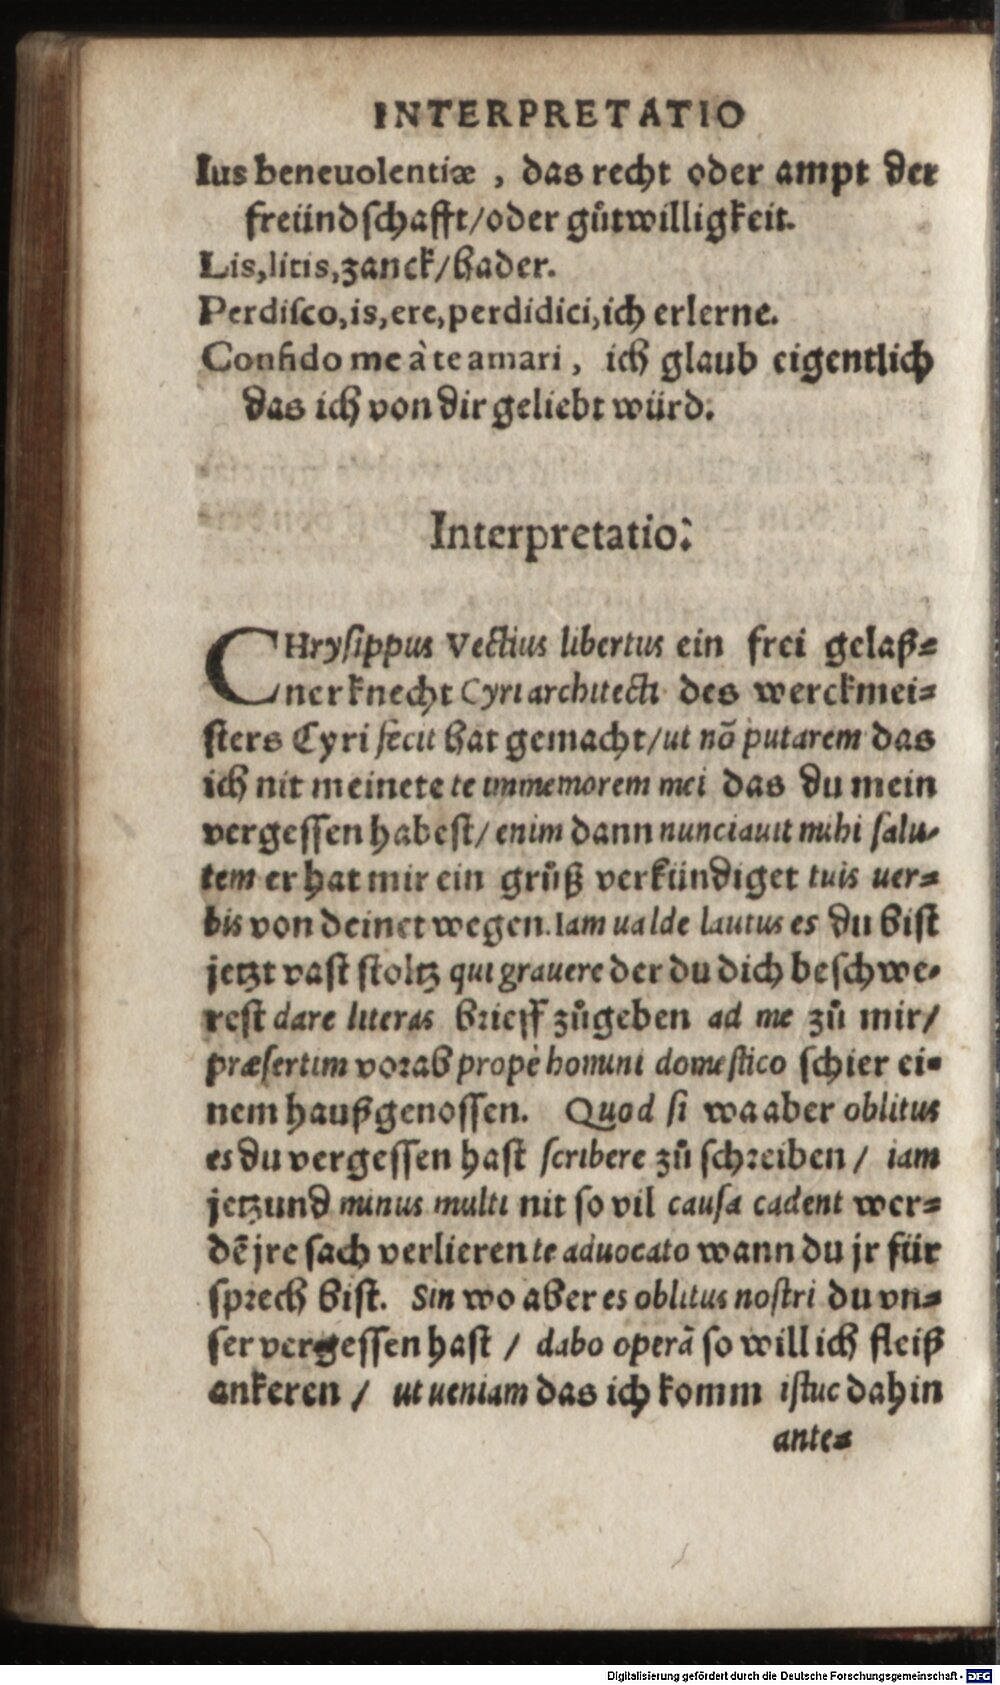 INTERPRETATIO
Ius beneuolentiæ, das recht oder ampt der
freündschafft/oder gůtwilligkeit.
Lis,litis,zanck/hader.
Perdisco,is,ere,perdidici,ich erlerne.
Confido me à te amari, ich glaub eigentlich
das ich von dir geliebt würd.
Interpretatio:
CHrysippus Vectius libertus ein frei gelaß=
ner knecht Cyri architecti des werckmei=
sters Cyri fecit hat gemacht/ut nõ putarem das
ich nit meinete te immemorem mei das du mein
vergessen habest/ enim dann nunciauit mihi salu-
tem er hat mir ein grůß verkündiget tuis uer=
bis von deinet wegen. Iam ualde lautus es du bist
jetzt vast stoltz qui grauere der du dich beschwe-
rest dare literas brieff zůgeben ad me zů mir/
præsertim vorab propè homini domestico schier ei=
nem haußgenossen. Quod si wa aber oblitus
es du vergessen hast scribere zů schreiben / iam
jetzund minus multi nit so vil causa cadent wer=
dẽ jre sach verlieren te aduocato wann du jr für
sprech bist. Sin wo aber es oblitus nostri du vn=
ser vergessen hast / dabo operã so will ich fleiß
ankeren / ut ueniam das ich komm istuc dahin
ante=
Digitalisierung gefördert durch die Deutsche Forschungsgemeinschaft - DFG